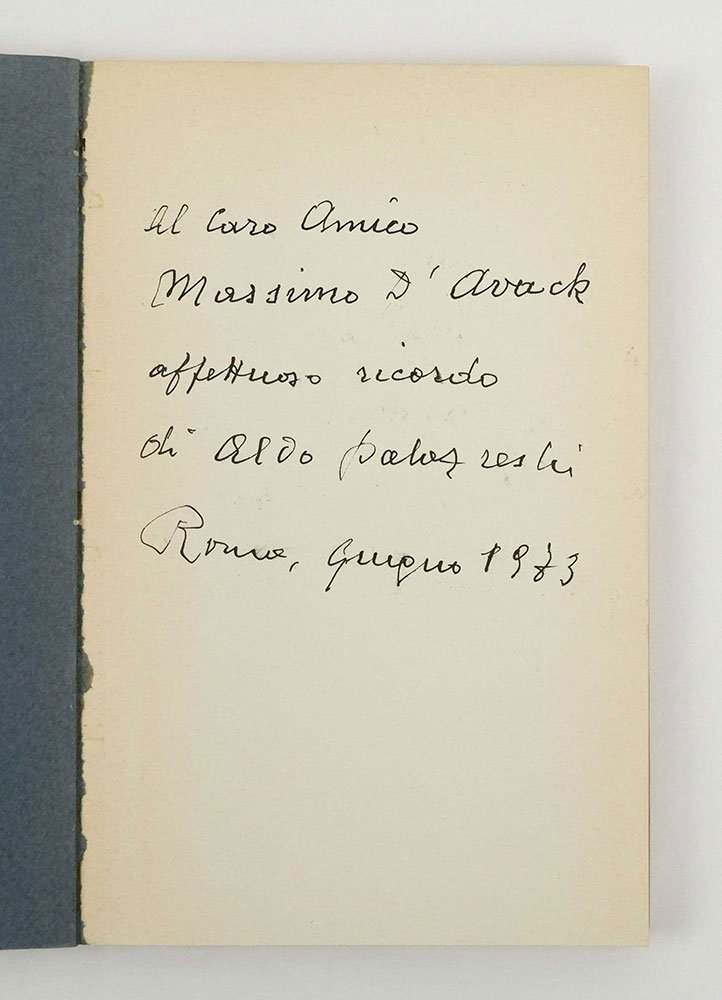 Al Caro Amico
Massimo D'Avack
affettuoso ricordo
di Aldo Palazzeschi
Roma, giugno 1973